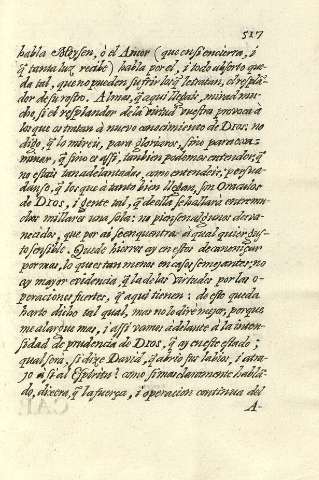 517
habla Moysen, ò el Amor (que en si encierra, i
q̃ tanta luz recibe) habla por el, i todo absorto que-
da tal, que no pueden sufrir lus q̃ le tratan, el resplã-
dor de su rostro. Almas, q̃ aqui llegais, mirad mu-
cho, si el resplandor de la virtud vuestra provoca à
los que os tratan à nuevo conocimiento de DIOS: no
digo, q̃ lo mireis, para gloriaros, sino para exa-
minar, q̃ si no es assi, tambien podemos entender, q̃
no estais tan adelantados, como entendeis; persua-
danse, q̃ los que à tanto bien llegan, son Oraculos
de DIOS, i gente tal, q̃ de ella se hallarà entre mu-
chos millares una sola: no piensen algunos desva-
necidos, que por ai se encuentra à qual quier gus-
to sensible. Quede hierros ay en estos de caminar
por mas, lo que es tan menos en casos semejantes; no
ay mayor evidencia q̃ la de las virtudes por las o-
peraciones fuertes, q̃ aqui tienen: de esto queda
harto dicho tal qual, mas no lo dirè mejor, porque
me alargue mas, i assi vamos adelante à la inten-
sidad de prudencia de DIOS, q̃ ay en este estado;
qual serà, si dize David, q̃ abrio sus labios, i atra-
jo à si al Espiritu? como, si mas claramente hablã-
do, dixera, q̃ la fuerça, i operacion continua del
A-